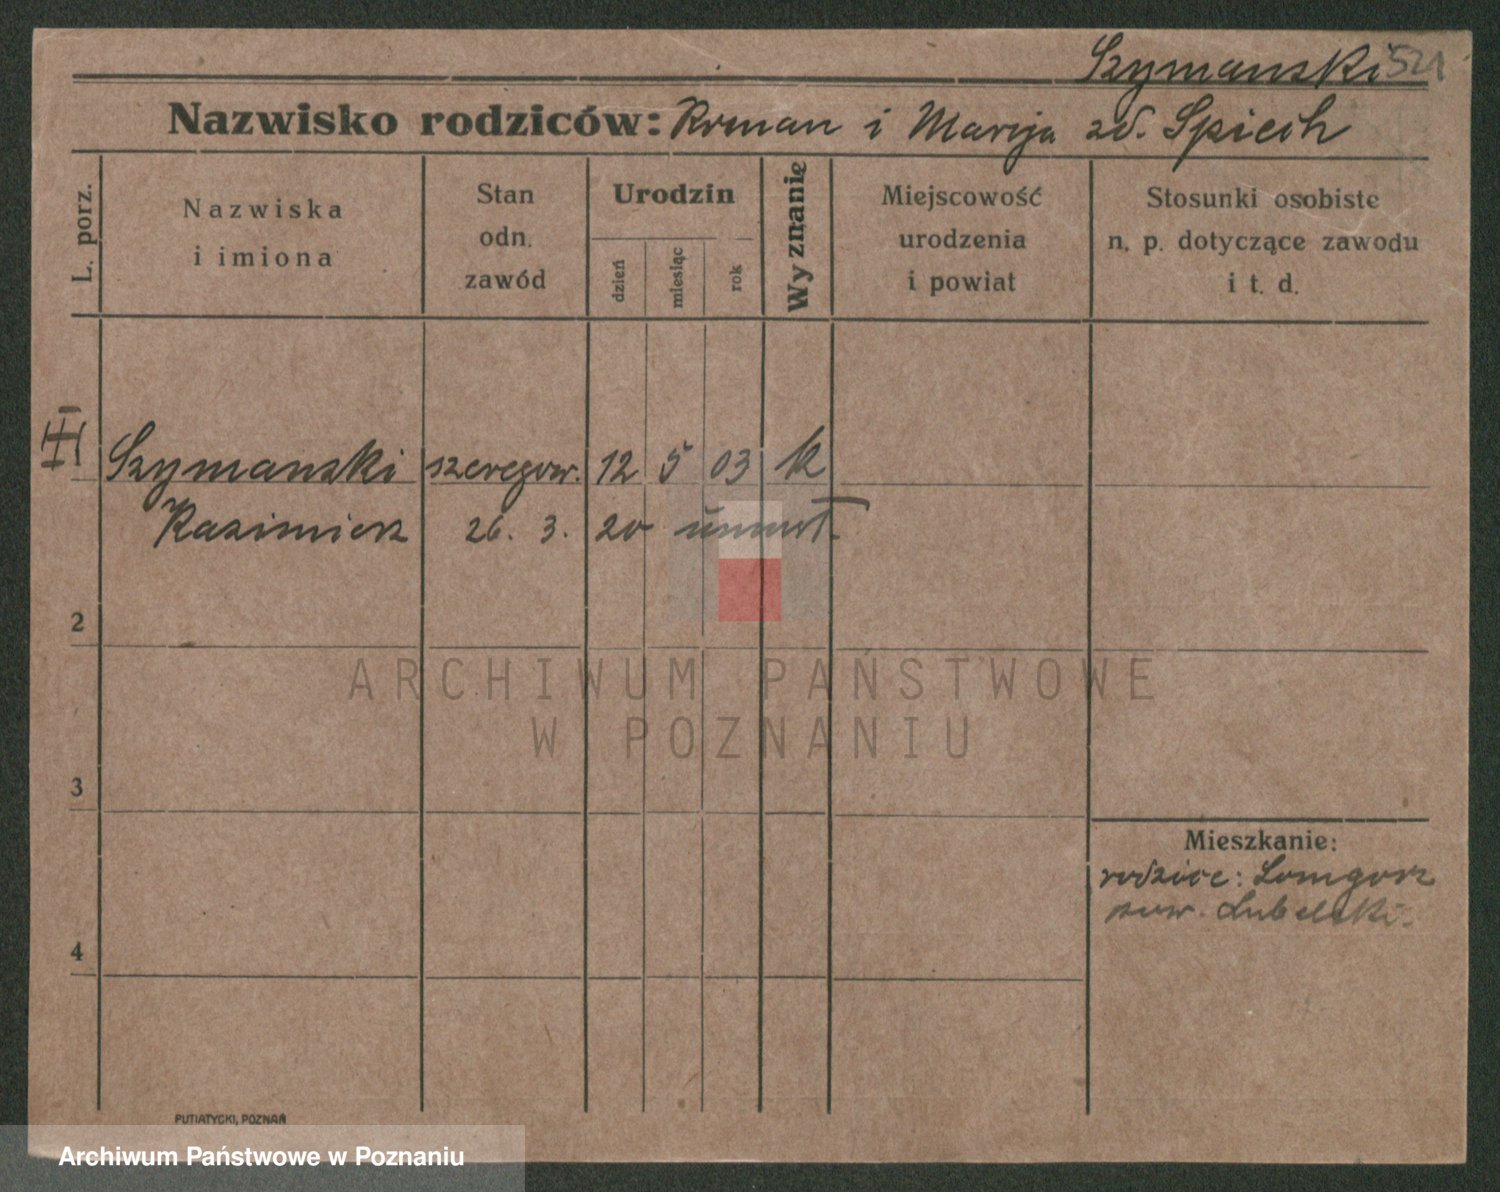 Szymanski 521
Nazwisko rodziców: Roman i Marija zd. Spiech
L. porz.
Nazwiska
i imiona
Stan
odn.
zawód
Urodzin
dzień
miesiąc
rok
Wyznanie
Miejscowość
urodzenia
i powiat
Stosunki osobiste
n. p. dotyczące zawodu
i t. d.
III Szymanski szeregow. 12 5 03 k
Kazimierz 26. 3. 20 umarł.
2
3
4
ARCHIWUM PAŃSTWOWE
W POZNANIU
Mieszkanie:
rodzice: Lomgorz
pow. Lubelski.
PUTIATYCKI, POZNAŃ
Archiwum Państwowe w Poznaniu